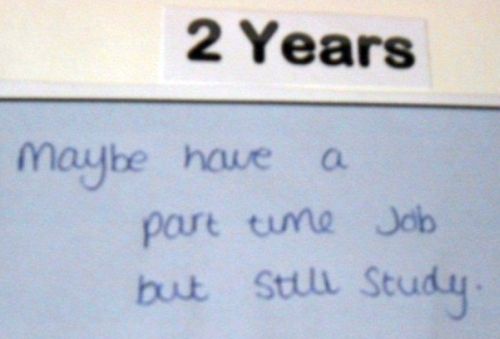 2 Years
Maybe have a
part time Job
but still study.